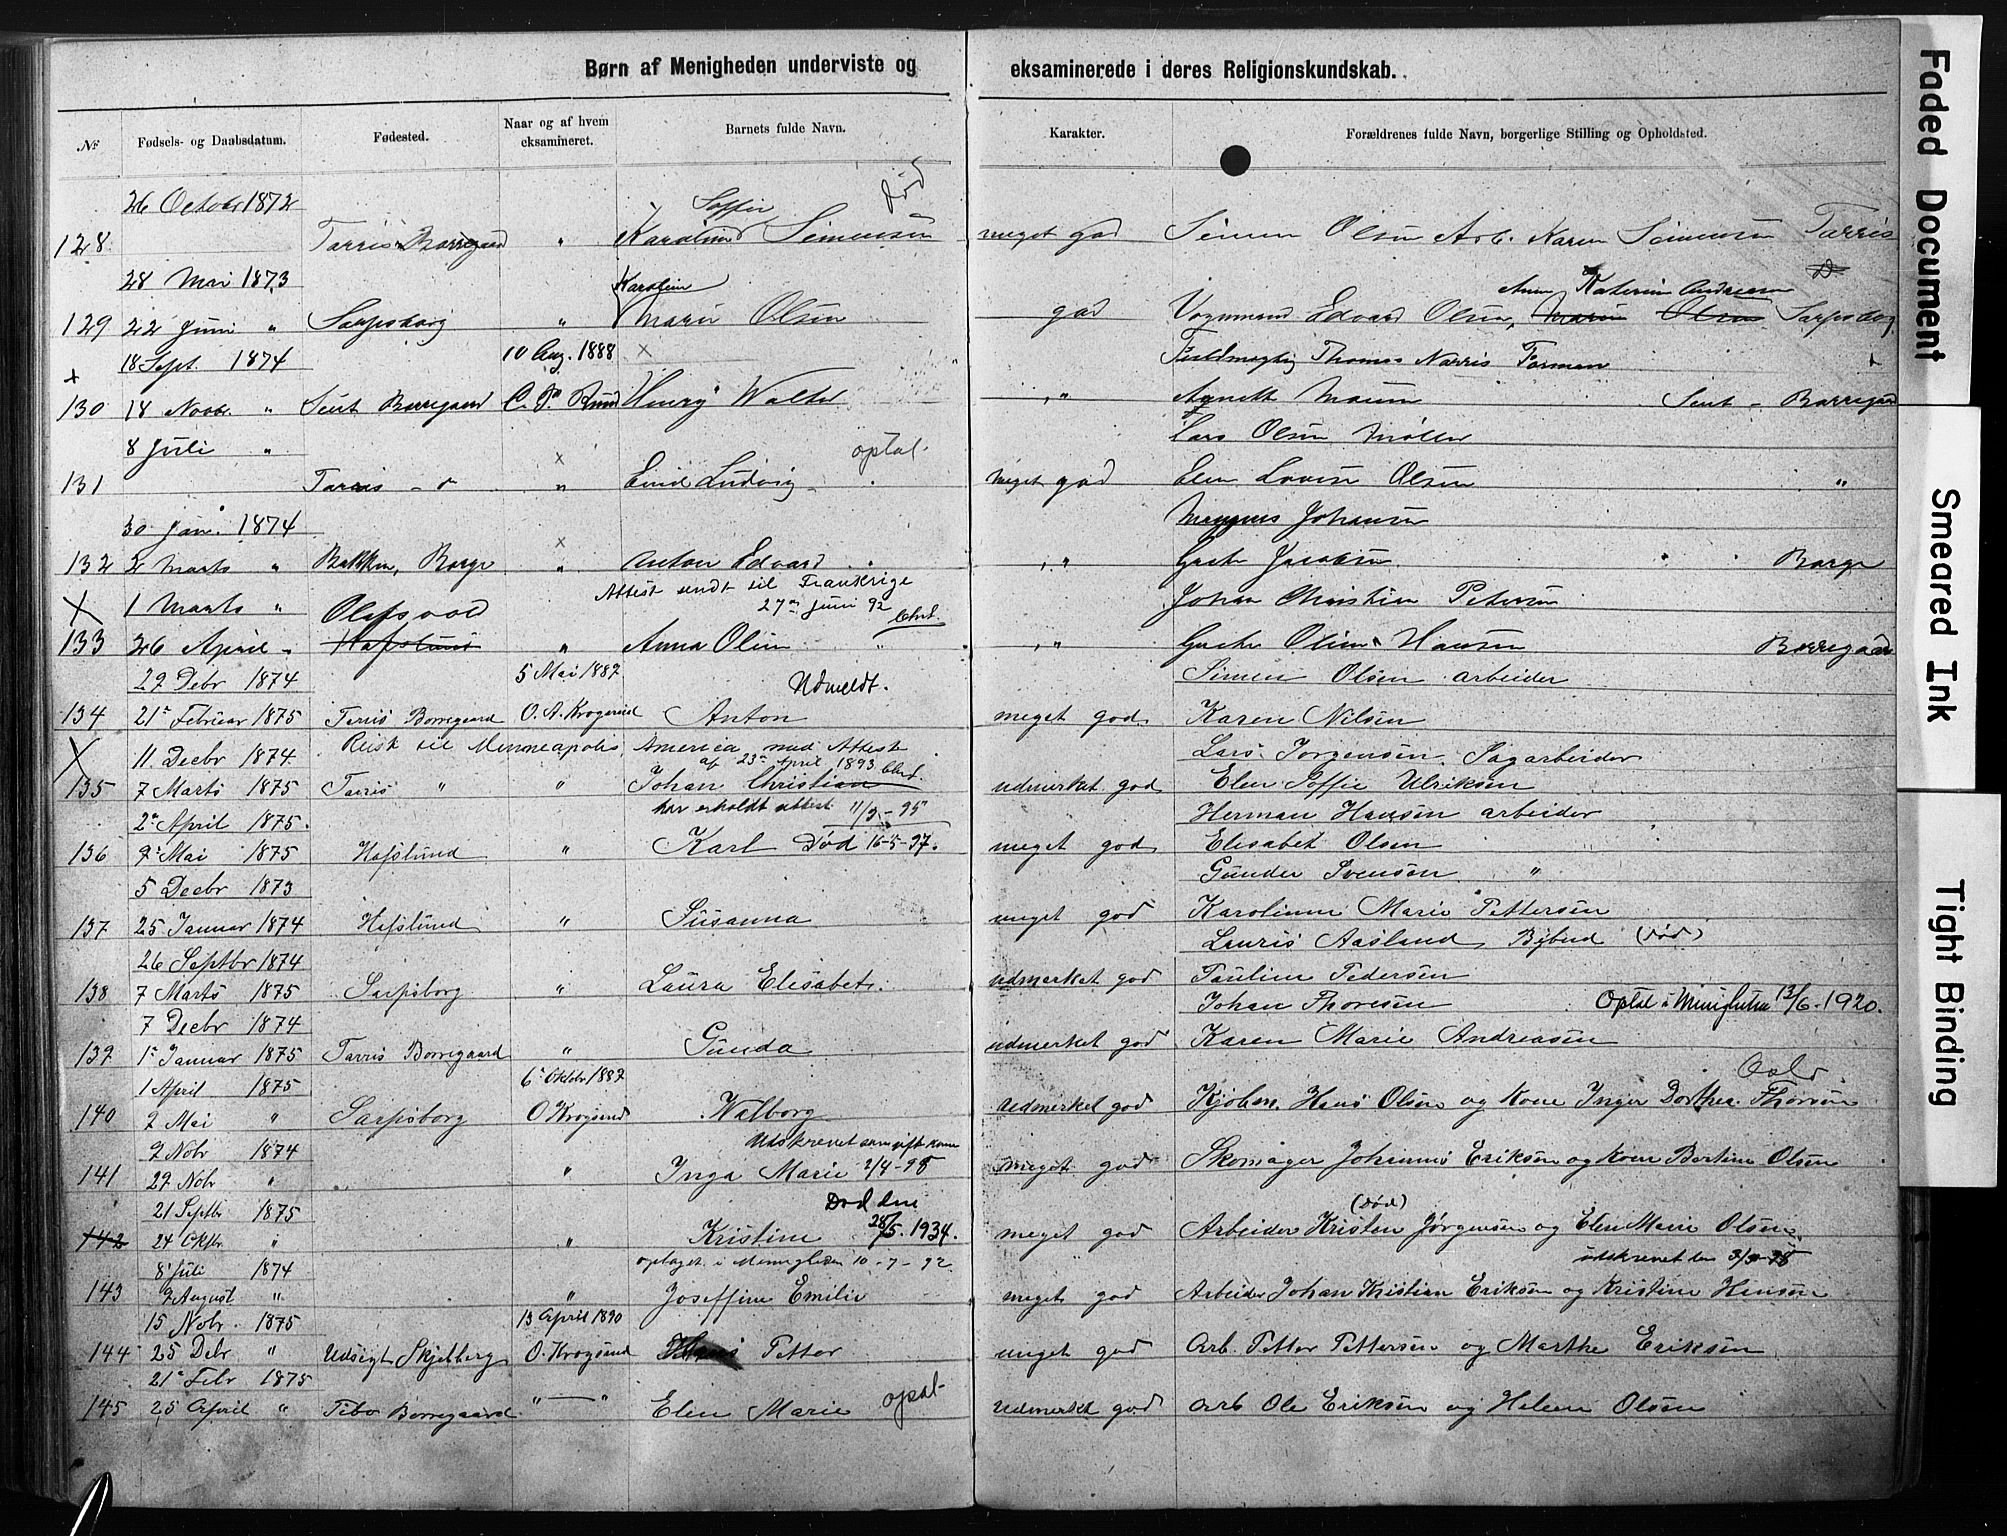 Børn af Menigheden underviste og eksaminerede i deres Religionskundskab.
№ Fødsels- og Daabsdatum. Fødested. Naar og af hvem eksamineret. Barnets fulde Navn. Karakter. Forældrenes fulde Navn, borgerlige Stilling og Opholdsted.
26 October 1872 Soffie død
128 Tarris Borregaard " Simensen meget god Simen Olsen Arb. Karen Simensen Tarris
28 Mai 1873 Karoline Anne Katerin Andresen
129 22 Juni " Sarpsborg " Marie Olsen god Vognmand Edvard Olsen, Maren Olsen Sarpsborg
18 Sept. 1874 10 Aug. 1888 x Thomas Norris Forman
x
130 18 Novbr. " Borregaard Henry Walter " Agnette Borregaard
8 Juli " Lars Olsen Møller
x optat
131 Tarris " Emil Ludvig meget god Elen Lovise Olsen "
30 Jan. 1874 Magnus Johansen
x
132 2 Marts " Bakken, Borge " Anton Edvard " Jacobsen Borge
Attest sendt til Frankrige
X 1 Marts " Olafsvold 27de Juni 92 Johan Christian Petersen
133 26 April " Hafslund " Anna Olin " Olin Hansen Borregaard
29 Debr 1874 5 Mai 1889 Udmeldt. Simen Olsen arbeider
134 21de Februar 1875 Tarris Borregaard O. A. Krogsund Anton meget god Karen Nilsen
X 11 Decbr 1874 Reist til Minneapolis America med Attest Lars Jørgensen Sagarbeider
af 23de April 1893
135 7 Marts 1875 Tarris " " Johan Christian udmerket god Elen Soffie Ulriksen
2de April 1875. har erholdt attest 11/3-95 Herman Hansen arbeider
136 9de Mai 1875 Hafslund " Karl Død 16-5-37. meget god Elisabet Olsen
5 Decbr 1873 Gunder Svensen "
137 25 Januar 1874 Hafslund " Susanna meget god Karolinne Marie Pettersen
26 Septbr 1874 Lauris Aasland Bybud (død)
138 7 Marts 1875 Sarpsborg " Laura Elisabet udmerket god Pauline Pedersen
7 Decbr 1874 Johan Thoresen Optat i Menigheten 13/6-1920.
139 1de Januar 1875 Tarris Borregaard " Gunda udmerket god Karen Marie Andreasen
1 April 1875 6de Oktobr 1889 Oslo
140 2 Mai " Sarpsborg O Krogsund Valborg udmerket god Kjøbm. Hans Olsen og Kone Inger Dorthea Thoresen
9 Nobr 1874 Udskrevet som gift kone
141 29 Nobr " " Inga Marie 2/4-98 meget god Skomager Johannes Eriksen og Kone Bertine Olsen
21 Septbr 1875 Død den (død)
142 24 Oktbr " " Kristine 28/5.1934. meget god Arbeider Kristen Jørgensen og Elen Marie Olsen
8de Juli 1874 optaget i Menigheden 10-7-92 udskrevet den 3/3-98
143 9 August " " Joseffine Emilie meget god Arbeider Johan Kristian Eriksen og Kristine Hansen
15 Nobr. 1875 13 April 1890
144 25 Debr " Udsigt Skjeberg O. Krogsund Petter meget god Arb. Petter Pettersen og Marthe Eriksen
21de Febr 1875 optat
145 25 April " Tibo Borregaard " " Elen Marie udmerket god Arb Ole Eriksen og Helene Olsen
Faded Document
Smeared Ink
Tight Binding